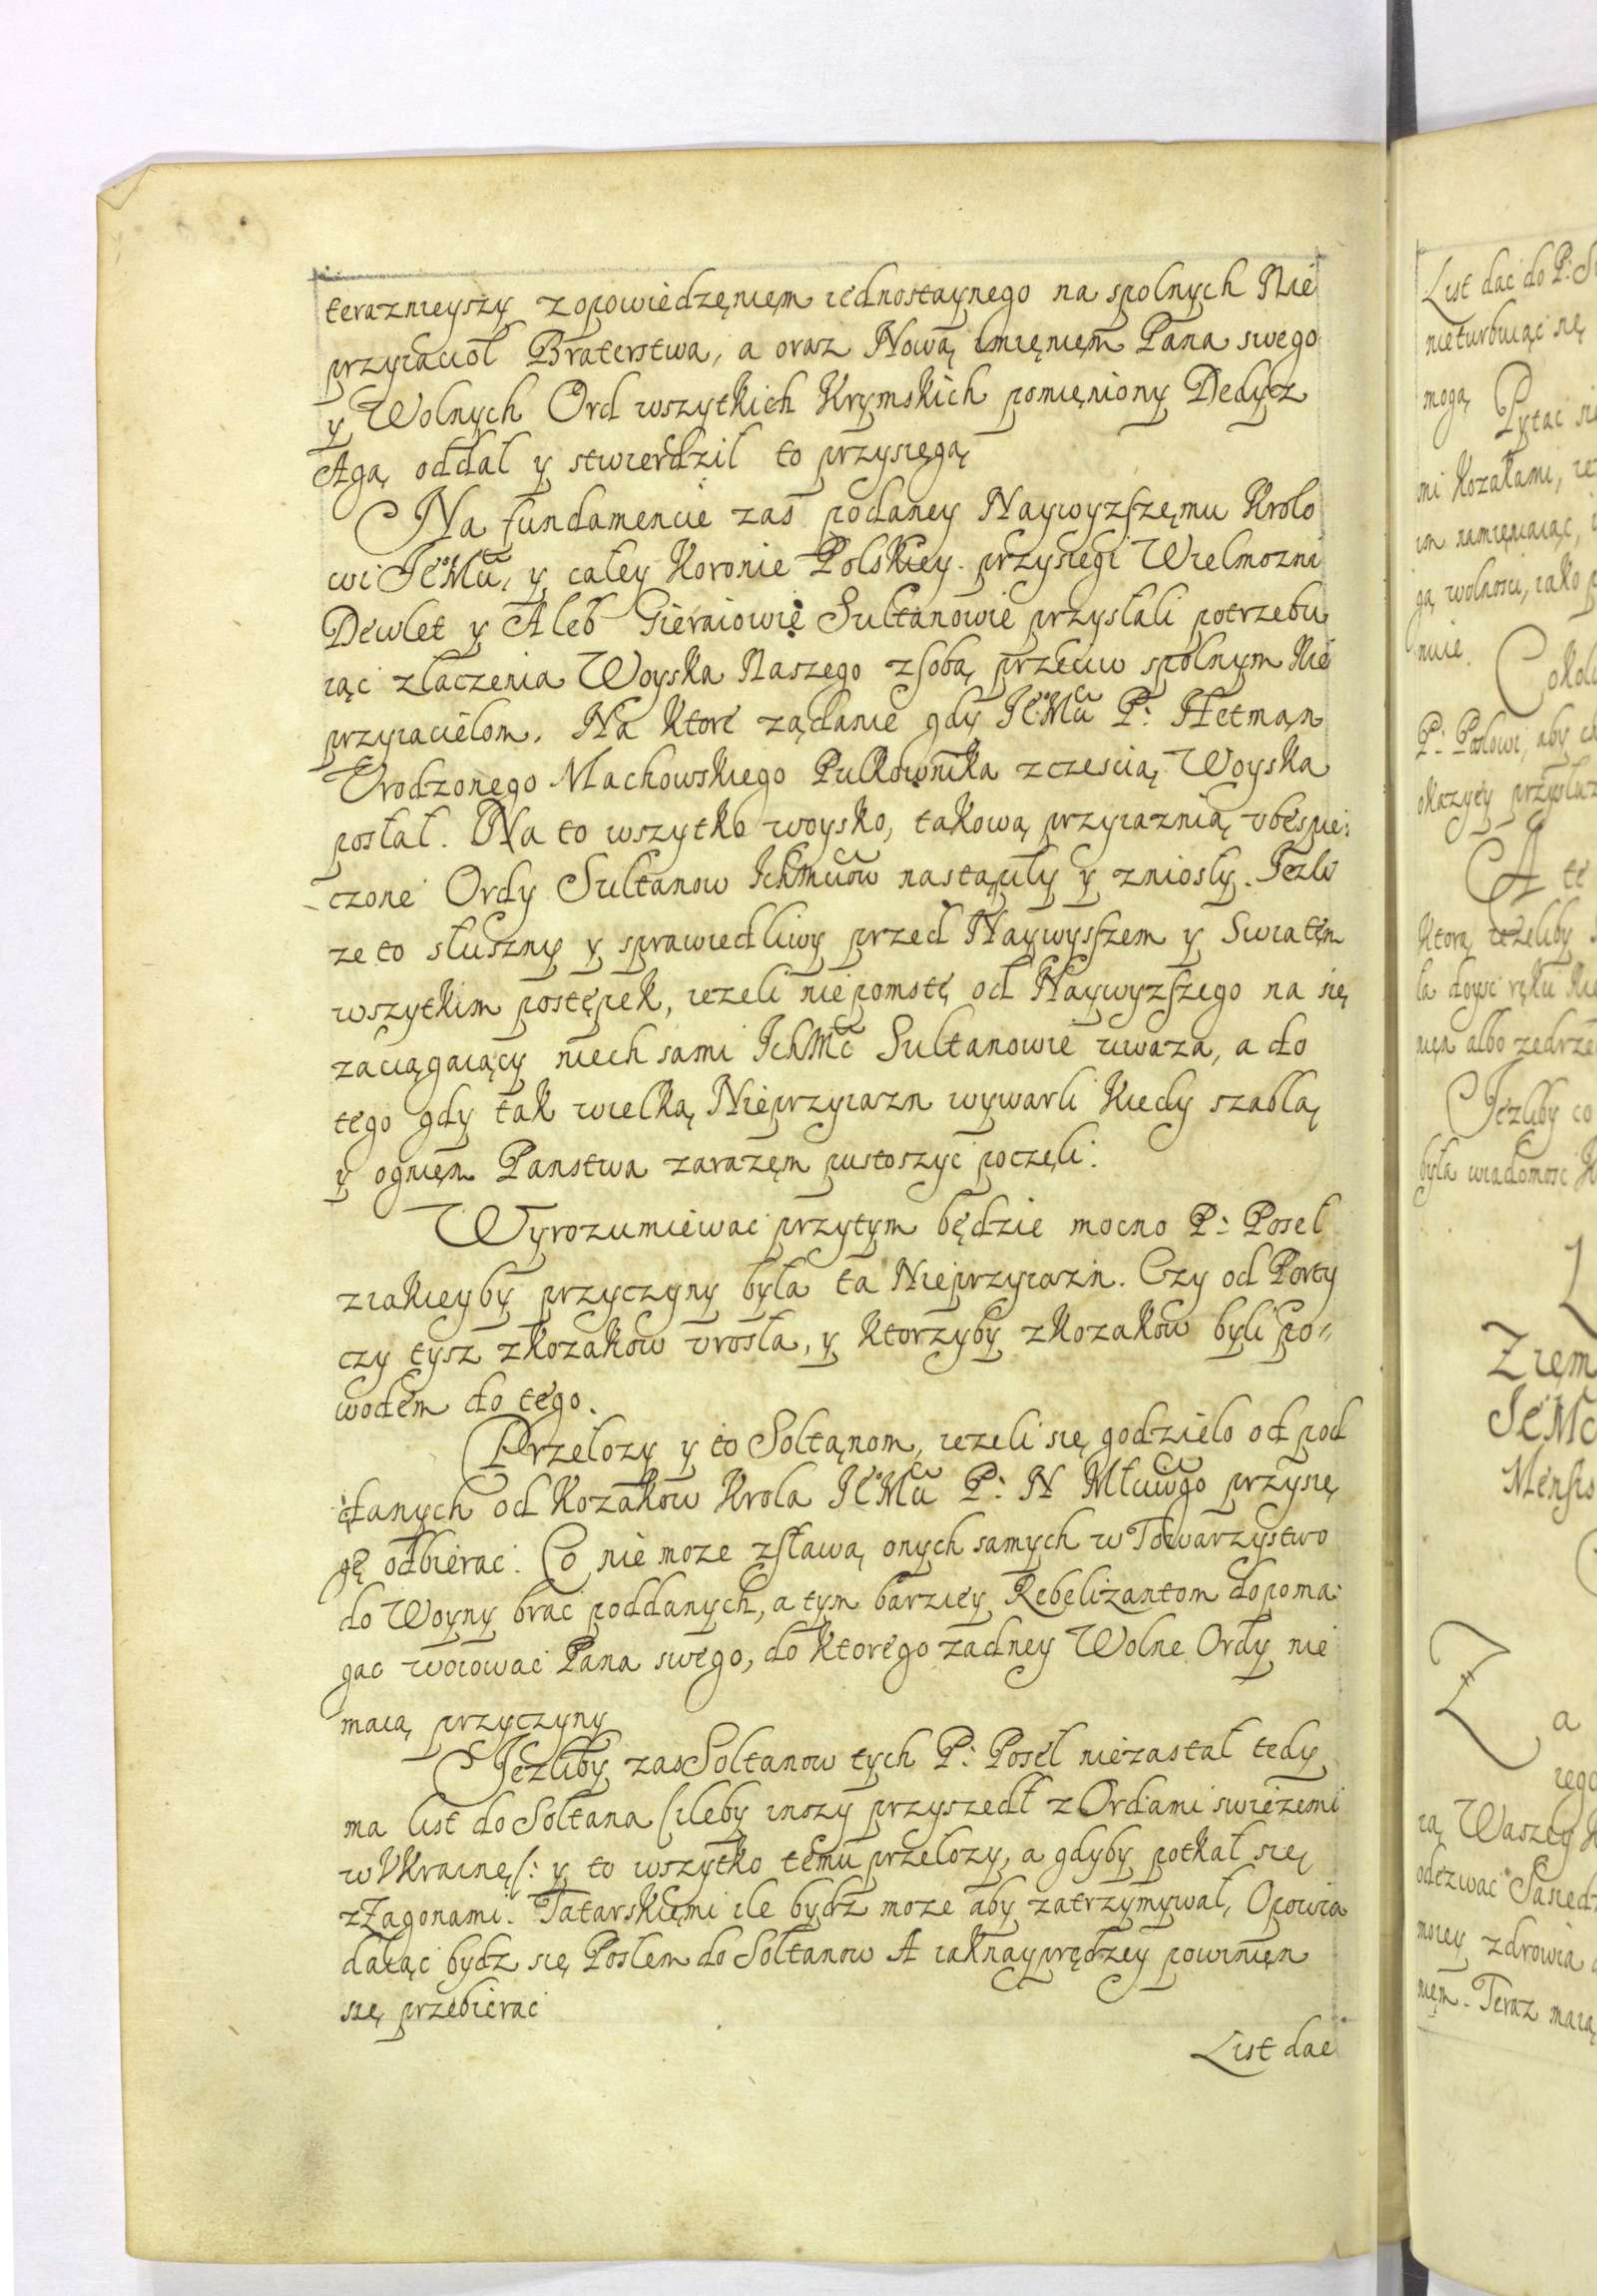 teraznieyszy z opowiedzęnięm iednostaynego na spolnych Nie
przyiaciol Braterstwa, a oraz Nową imięnięm Pana swego
y Wolnych Ord wszytkich Krymskich pomięniony Dedycz
Aga, oddal y stwierdzil to przysięgą
Na fundamencie zas podaney Naywyzszęmu Krolo
wi JeMci, y całey Koronie Polskiey przysiegi Wielmozni
Dewlet y Aleb Gieraiowie Sultanowie przysłali potrzebu
iąc złaczenia Woyska Naszego z sobą przeciw spolnym Nie
przyiacielom. Na ktore ządanie gdy JeMci P: Hetman
Vrodzonego Machowskiego Pulkownika z czescią Woyska
posłał. Na to wszytko woysko, takową przyiaznią vbespie:
czone Ordy Sultanow Ichmciow nastąpiły y zniosly. Jezli
ze to słuszny y sprawiedliwy przed Naywyszszem y Swiatęm
wszytkim postępek, iezeli nie pomstę od Naywyzszego na się
zaciągaiący niech sami IchMc Sultanowie uwaza, a do
tego gdy tak wielką Nieprzyiazn wywarli kiedy szablą
y ognięm Panstwa zarazęm pustoszyc poczęli.
Wyrozumiewac przytym będzie mocno P: Posel
z iakieyby przyczyny była ta Nieprzyiazn. Czy od Porty
czy tysz z kozakow vrosła, y ktorzyby z kozakow byli po„
wodem do tego.
Przelozy y to Soltąnom, iezeli się godzielo od pod
danych od Kozakow Krola JeMci P: N Mtciwgo przysię
gę odbierac. Co nie moze z sławą onych samych w Towarzystwo
do Woyny brac poddanych, a tym barziey Rebelizantom dopoma:
gac woiowac Pana swego, do ktorego zadney Wolne Ordy nie
maią przyczyny
Jezliby zas Soltanow tych P: Poseł niezastał tedy
ma list do Sołtana (ileby inszy przyszedł z Ordami swiezemi
w Vkrainę/: y to wszytko temu przelozy, a gdyby potkał się
z Zagonami Tatarskięmi ile bydz moze aby zatrzymywał, Opowia
daiąc bydz się Posłem do Sołtanow A iaknayprędzey powinięn
się przebierac
List dac
List dac do P: S
nieturbuiąc się
mogą Pytac si
mi kozakami, ie
im namięniaiąc,
gą wolnosci, iako p
nuie. Cokol
P: Posłowi, aby
okazyey przysłuz
A te
ktorą iezeliby
la doysc ręku Ni
nięn albo zedrze
Jezliby co
była wiadomosc
Zięm
JeMc
Mensis
Za
iego
ią Waszey
odezwac Sasiedz
moiey zdrowia
nięm. Teraz maią